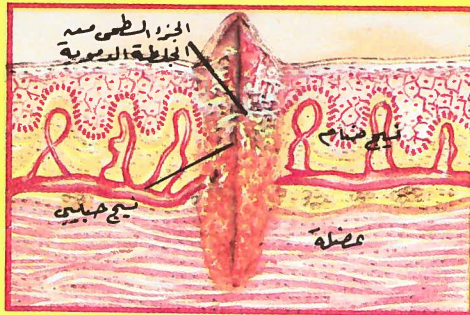 الجزء السطحي من
الجلطة الدموية
نسيج ضام
نسيج حبيبي
عضلة